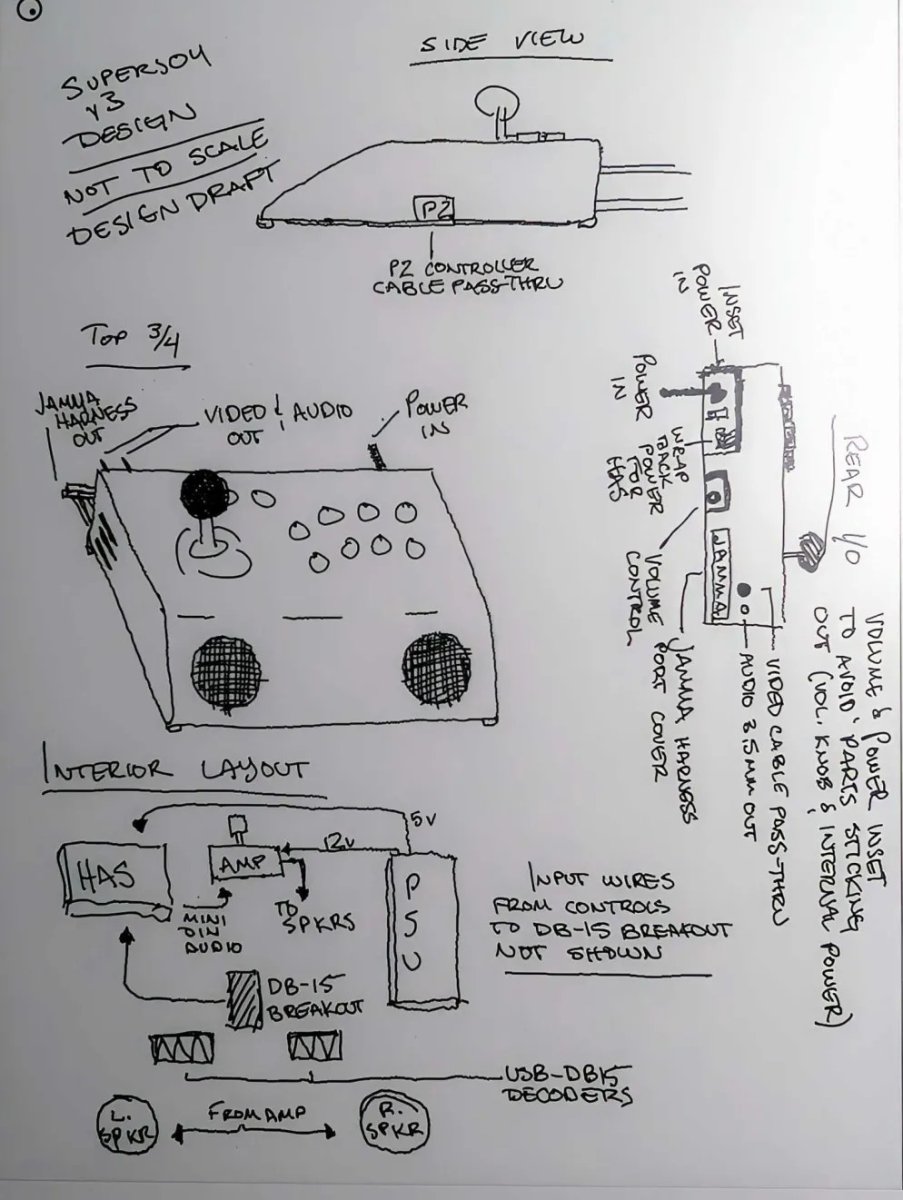 SUPERSOY
V3
DESIGN
NOT TO SCALE
DESIGN DRAFT
SIDE VIEW
P2
P2 CONTROLLER
CABLE PASS-THRU
TOP 3/4
JAMMA
HARNESS
OUT
VIDEO & AUDIO
OUT
POWER
IN
INSET
POWER
IN
POWER
IN
WRAP
BACK
POWER
FOR
HAS
VOLUME
CONTROL
JAMMA
JAMMA HARNESS
PORT COVER
AUDIO 3.5MM OUT
VIDEO CABLE PASS-THRU
REAR I/O
VOLUME & POWER INSET
TO AVOID PARTS STICKING
OUT (VOL. KNOB & INTERNAL POWER)
INTERIOR LAYOUT
5V
12V
HAS
AMP
PSU
MINI
DIN
AUDIO
TO
SPKRS
DB-15
BREAKOUT
INPUT WIRES
FROM CONTROLS
TO DB-15 BREAKOUT
NOT SHOWN
USB-DB15
DECODERS
L.
SPKR
FROM AMP
R.
SPKR